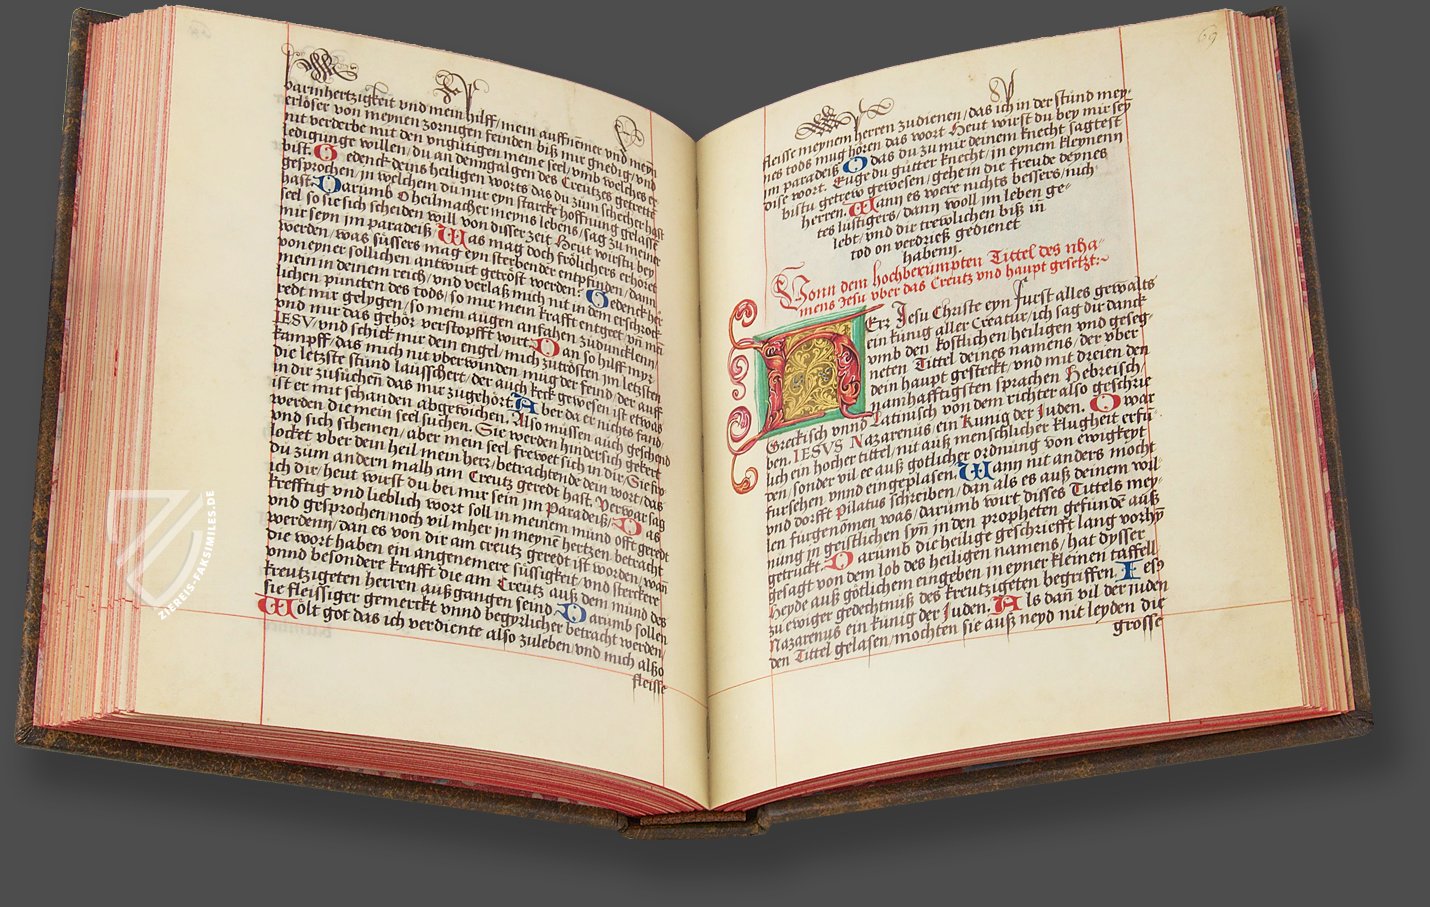 barmhertzigkeit vnd mein hilff/mein auffnemer vnd meyn
erlöser von meynen zornigen feinden biß mir gnedig/vnd
nit verderbe mit den vngütigen meine seel/vmb welches er
ledigunge willen/du an dem galgen des Creutzes getötte
bist. Gedenck deins heiligen worts das du zum schecher hast
gesprochen/in welchem du mir eyn starcke hoffnung gelasse
hast. Darumb O heilmacher meyns lebens/sag zu meiner
seel so sie sich scheiden will von disser zeit. Heut wirstu bey
mir seyn im paradeiß. Was mag doch frölichers erhöret
werden/was süssers mag eyn sterbender entpfinden/dann
von eyner sollichen antwurt getröst werden. Gedenck her
mein in deinem reich/vnd verlaß mich nit in den erschrock
lichen puncten des tods/so mir mein krafft entgeet vñ mei
redt mir gelygen/so mein augen anfahen zudunckelnn/
vnd mir das gehör verstopfft wirt. Dan so hilff myr
IESV/vnd schick mir dein engel/mich zutrösten im letzsten
kampff/das mich nit vberwinden mug der feind/der auff
die letzste stund lausschert/der auch keck gewesen ist etwas
in dir zusuchen das mir zugehört. Aber da er nichts fand/
ist er mit schanden abgewichen. Also müssen auch geschend
werden die mein seel suchen. Sie werden hindersich gekert
vnd sich schemen/aber mein seel frewet sich in dir/Sie fro
locket vber dein heil mein hertz/betrachtende dein wort/das
du zum andern malh am Creutz geredt hast. Verwar sag
ich dir/heut wirst du bei mir sein im Paradeiß/Das
krefftig vnd lieblich wort soll in meinem mund offt geredt
vnd gesprochen/noch vil mher in meynē hertzen betracht
werdenn/dan es von dir am creutz geredt ist worden/wañ
die wort haben ein angenemere süssigkeit/vnd sterckere
vnnd besondere krafft die am Creutz auß dem mund des
kreutzigeten herren außgangen seind. Darumb sollen
sie fleissiger gemerckt vnnd begyrlicher betracht werden/
Wölt got das ich verdiente also zuleben/vnd mich alßo
fleisse
69
fleisse meynem herren zudienen/das ich in der stund mey-
nes tods mug hören das wort Heut wirst du bey mir sey
im paradeiß. O das du zu mir deinem knecht sagtest
dise wort. Euge du gutter knecht/in eynem kleynenn
bistu getrew gewesen/gehe in die freude deynes
herren. Wann es were nichts bessers/nich
tes lustigers/dann woll im leben ge-
lebt/vnd dir trewlichen biß in
tod on verdrieß gedienet
habenn.
Vonn dem hochberumpten Tittel des nha-
mens Jesu vber das Creutz vnd haupt gesetzt:~
HErr Jesu Christe eyn Furst alles gewalts
ein kunig aller Creatur/ich sag dir danck
vmb den kostlichen/heiligen vnd geseg-
neten Tittel deines namens/der vber
dein haupt gesteckt/vnd mit dreien den
namhafftigsten sprachen Hebreisch
Greckisch vnnd Latinisch von dem richter also geschrie
ben. IESVS Nazarenus ein Kunig der Juden. O war
lich ein hocher tittel/nit auß menschlicher klugheit erfü-
den/sonder vil ee auß gotlicher ordnung von ewigkeyt
fursehen vnnd eingeplasen. Wann nit anders mocht
vnd dorfft Pilatus schreiben/dan als es auß deinem wil
len fürgenōmen was/darumb wirt disses Tittels mey-
nung in geistlichen syñ in den propheten gefunde auß
getruckt. Darumb die heilige geschrifft lang vorhȳ
gesagt von dem lob des heiligen namens/hat dysser
Heyde auß götlichem eingeben in eyner kleinen taffell
zu ewiger gedechtnüß des kreutzigeten begriffen. Iesꝰ
Nazarenus ein kunig der Juden. Als dañ vil der juden
den Tittel gelasen/mochten sie auß neyd nit leyden die
grosse
ZIEREIS-FAKSIMILES.DE